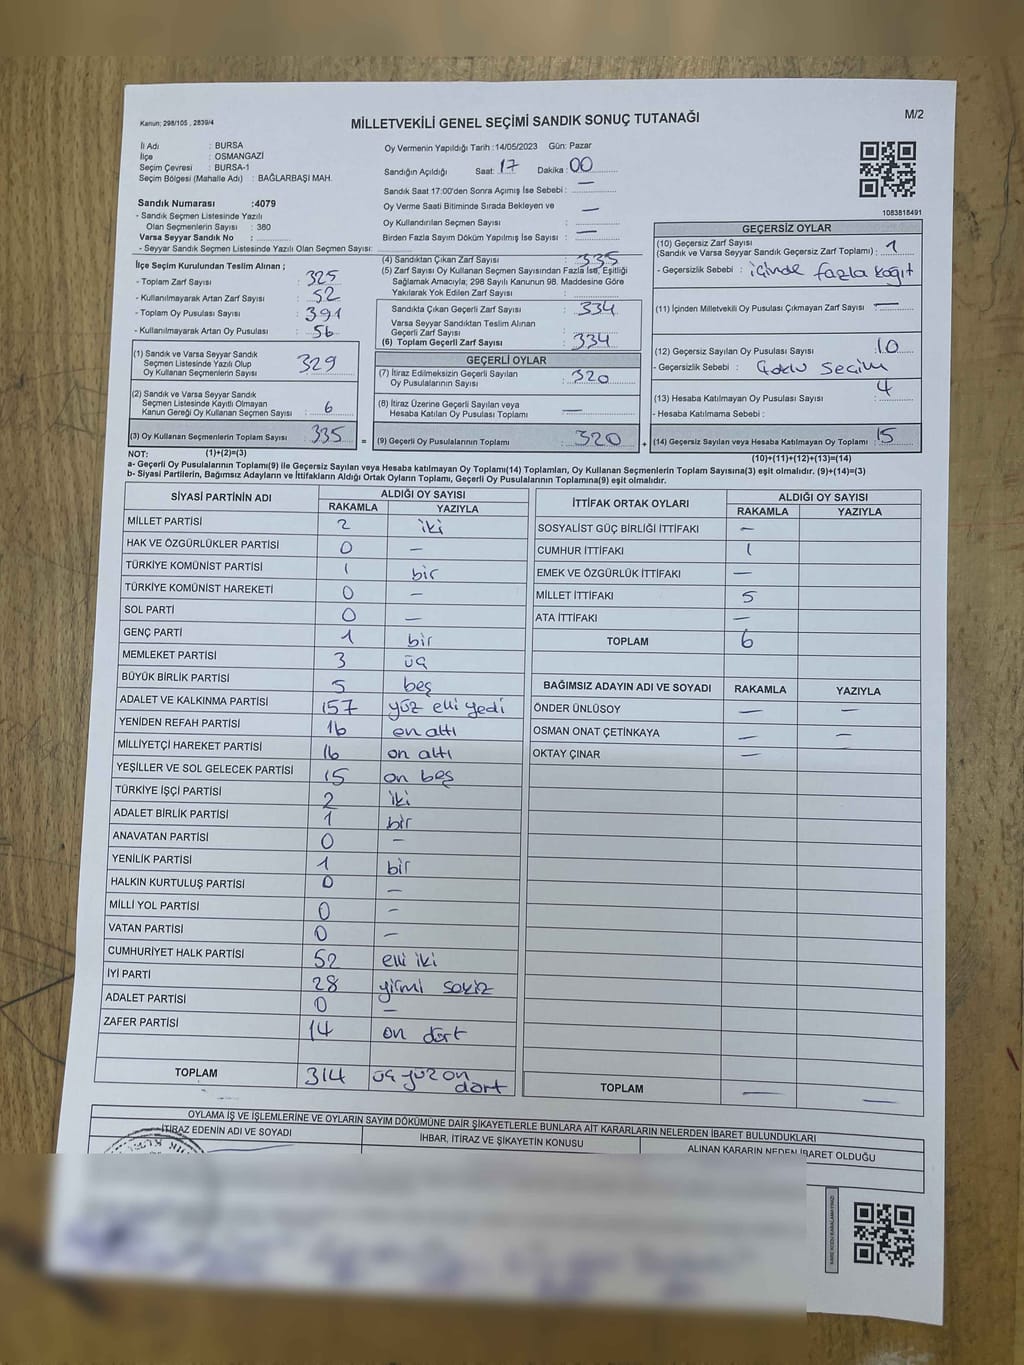 Kanun; 298/105 , 2839/4
MİLLETVEKİLİ GENEL SEÇİMİ SANDIK SONUÇ TUTANAĞI
M/2
İl Adı : BURSA
İlçe : OSMANGAZİ
Seçim Çevresi : BURSA-1
Seçim Bölgesi (Mahalle Adı) : BAĞLARBAŞI MAH.
Sandık Numarası :4079
- Sandık Seçmen Listesinde Yazılı
Olan Seçmenlerin Sayısı : 380
Varsa Seyyar Sandık No :
- Seyyar Sandık Seçmen Listesinde Yazılı Olan Seçmen Sayısı:
Oy Vermenin Yapıldığı Tarih :14/05/2023 Gün: Pazar
Sandığın Açıldığı Saat: 17 Dakika : 00
Sandık Saat 17:00'den Sonra Açımış İse Sebebi : —
Oy Verme Saati Bitiminde Sırada Bekleyen ve
Oy Kullandırılan Seçmen Sayısı : —
Birden Fazla Sayım Döküm Yapılmış İse Sayısı : —
1083818491
İlçe Seçim Kurulundan Teslim Alınan ;
- Toplam Zarf Sayısı : 325
- Kullanılmayarak Artan Zarf Sayısı : 52
- Toplam Oy Pusulası Sayısı : 391
- Kullanılmayarak Artan Oy Pusulası : 56
(1) Sandık ve Varsa Seyyar Sandık
Seçmen Listesinde Yazılı Olup
Oy Kullanan Seçmenlerin Sayısı : 329
(2) Sandık ve Varsa Seyyar Sandık
Seçmen Listesinde Kayıtlı Olmayan
Kanun Gereği Oy Kullanan Seçmen Sayısı : 6
(3) Oy Kullanan Seçmenlerin Toplam Sayısı : 335
(4) Sandıktan Çıkan Zarf Sayısı : 335
(5) Zarf Sayısı Oy Kullanan Seçmen Sayısından Fazla İse, Eşitliği
Sağlamak Amacıyla; 298 Sayılı Kanunun 98. Maddesine Göre
Yakılarak Yok Edilen Zarf Sayısı :
Sandıkta Çıkan Geçerli Zarf Sayısı : 334
Varsa Seyyar Sandıktan Teslim Alınan
Geçerli Zarf Sayısı :
(6) Toplam Geçerli Zarf Sayısı : 334
GEÇERLİ OYLAR
(7) İtiraz Edilmeksizin Geçerli Sayılan
Oy Pusulalarının Sayısı : 320
(8) İtiraz Üzerine Geçerli Sayılan veya
Hesaba Katılan Oy Pusulası Toplamı : —
= (9) Geçerli Oy Pusulalarının Toplamı : 320
GEÇERSİZ OYLAR
(10) Geçersiz Zarf Sayısı
(Sandık ve Varsa Seyyar Sandık Geçersiz Zarf Toplamı) : 1
- Geçersizlik Sebebi : içinde fazla kağıt
(11) İçinden Milletvekili Oy Pusulası Çıkmayan Zarf Sayısı : —
(12) Geçersiz Sayılan Oy Pusulası Sayısı : 10
- Geçersizlik Sebebi : Çoklu Seçim
(13) Hesaba Katılmayan Oy Pusulası Sayısı : 4
- Hesaba Katılmama Sebebi :
+ (14) Geçersiz Sayılan veya Hesaba Katılmayan Oy Toplamı : 15
NOT: (1)+(2)=(3)
(10)+(11)+(12)+(13)=(14)
a- Geçerli Oy Pusulaları Toplamı(9) ile Geçersiz Sayılan veya Hesaba katılmayan Oy Toplamı(14) Toplamları, Oy Kullanan Seçmenlerin Toplam Sayısına(3) eşit olmalıdır. (9)+(14)=(3)
b- Siyasi Partilerin, Bağımsız Adayların ve İttifakların Aldığı Ortak Oyların Toplamı, Geçerli Oy Pusulalarının Toplamına(9) eşit olmalıdır.
SİYASİ PARTİNİN ADI ALDIĞI OY SAYISI
RAKAMLA YAZIYLA
MİLLET PARTİSİ 2 iki
HAK VE ÖZGÜRLÜKLER PARTİSİ 0 —
TÜRKİYE KOMÜNİST PARTİSİ 1 bir
TÜRKİYE KOMÜNİST HAREKETİ 0 —
SOL PARTİ 0 —
GENÇ PARTİ 1 bir
MEMLEKET PARTİSİ 3 üç
BÜYÜK BİRLİK PARTİSİ 5 beş
ADALET VE KALKINMA PARTİSİ 157 yüz elli yedi
YENİDEN REFAH PARTİSİ 16 on altı
MİLLİYETÇİ HAREKET PARTİSİ 16 on altı
YEŞİLLER VE SOL GELECEK PARTİSİ 15 on beş
TÜRKİYE İŞÇİ PARTİSİ 2 iki
ADALET BİRLİK PARTİSİ 1 bir
ANAVATAN PARTİSİ 0 —
YENİLİK PARTİSİ 1 bir
HALKIN KURTULUŞ PARTİSİ 0 —
MİLLİ YOL PARTİSİ 0 —
VATAN PARTİSİ 0 —
CUMHURİYET HALK PARTİSİ 52 elli iki
İYİ PARTİ 28 yirmi sekiz
ADALET PARTİSİ 0 —
ZAFER PARTİSİ 14 on dört
TOPLAM 314 üç yüz on dört
İTTİFAK ORTAK OYLARI ALDIĞI OY SAYISI
RAKAMLA YAZIYLA
SOSYALİST GÜÇ BİRLİĞİ İTTİFAKI —
CUMHUR İTTİFAKI 1
EMEK VE ÖZGÜRLÜK İTTİFAKI —
MİLLET İTTİFAKI 5
ATA İTTİFAKI —
TOPLAM 6
BAĞIMSIZ ADAYIN ADI VE SOYADI RAKAMLA YAZIYLA
ÖNDER ÜNLÜSOY — —
OSMAN ONAT ÇETİNKAYA — —
OKTAY ÇINAR —
TOPLAM — —
OYLAMA İŞ VE İŞLEMLERİNE VE OYLARIN SAYIM DÖKÜMÜNE DAİR ŞİKAYETLERLE BUNLARA AİT KARARLARIN NELERDEN İBARET BULUNDUKLARI
İTİRAZ EDENİN ADI VE SOYADI İHBAR, İTİRAZ VE ŞİKAYETİN KONUSU ALINAN KARARIN NEDEN İBARET OLDUĞU